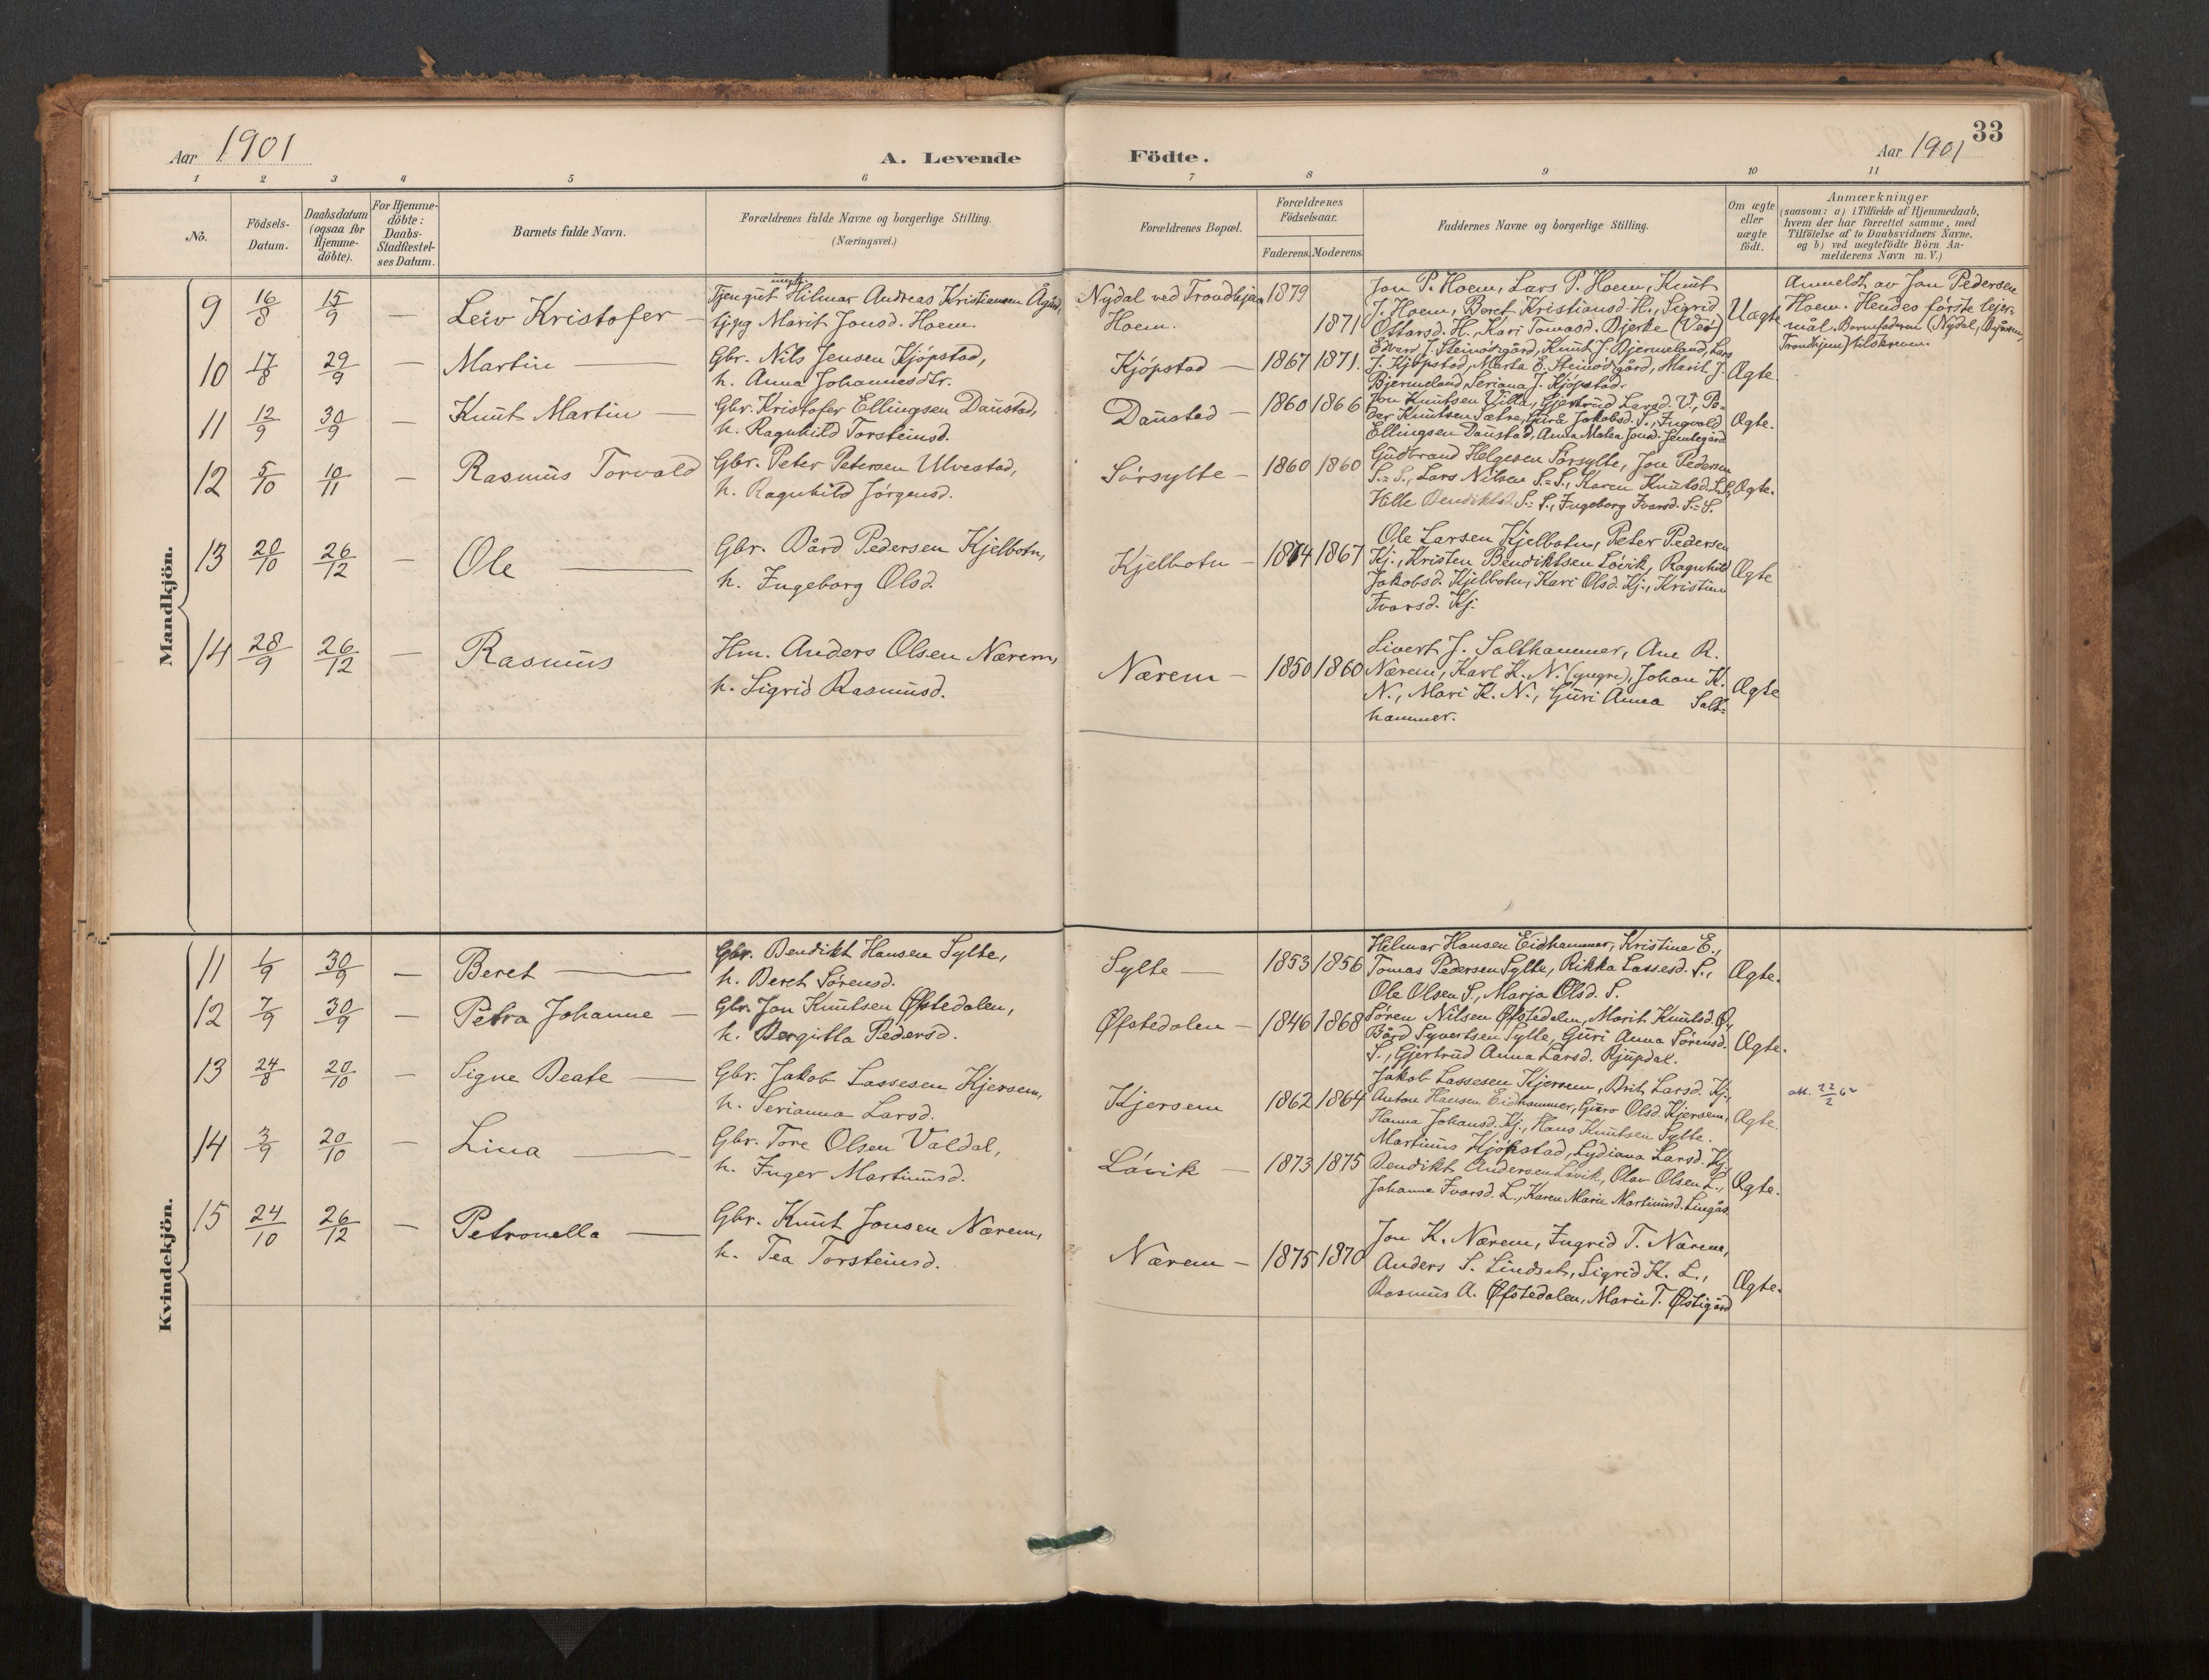 Aar 1901
A. Levende Födte.
Aar 1901
33
1 2 3 4 5 6 7 8 9 10 11
No.
Födsels-Datum.
Daabsdatum (ogsaa for Hjemme-döbte).
For Hjemme-döbte: Daabs-Stadfæstel-ses Datum.
Barnets fulde Navn.
Forældrenes fulde Navne og borgerlige Stilling.
(Næringsvei.)
Forældrenes Bopæl.
Forældrenes Födselsaar.
Faderens. Moderens.
Faddernes Navne og borgerlige Stilling.
Om ægte eller uægte födt.
Anmærkninger
(saasom: a) i Tilfælde af Hjemmedaab,
hvem der har forrettet samme, med
Tilföielse af to Daabsvidners Navne,
og b) ved uægtefödte Börn An-
melderens Navn m. V.)
Mandkjön.
9 16/8 15/9 — Leiv Kristofer —
ungk.
Tjengut Hilmar Andreas Kristiansen Ågård,
tjpg Marit Jonsd. Hoem.
Nydal ved Trondhjem
Hoem.
1879
1871
Jon P. Hoem, Lars P. Hoem, Knut
J. Hoem, Beret Kristiansd. H., Sigrid
Ottarsd. H., Kari Tomasd. Bjerke (Veö)
Uægte
Anmeldt av Jon Pedersen
Hoem. Hendes förste lejer-
mål. Barnefaderen (Nydal,
Trondhjem) tilskreven.
10 17/8 29/9 — Martin —
Gbr. Nils Jensen Kjöpstad,
h. Anna Johannesdtr.
Kjöpstad — 1867 1871.
Edvard J. Steinödegård, Knut J. Bjermeland, Lars
J. Kjöpstad, Marta E. Steinödegård, Marit J.
Bjermeland, Seriana J. Kjöpstad.
Ægte.
11 12/9 30/9 — Knut Martin —
Gbr. Kristofer Ellingsen Daustad,
h. Ragnhild Torsteinsd.
Daustad — 1860 1866
Jon Knutsen Villa, Gjertrud Larsd. V., Pe-
der Knutsen Sætre, Jakobsd. S., Ingvald
Ellingsen Daustad, Anna Matea Jonsd.
Ægte.
12 5/10 10/11 — Rasmus Torvald
Gbr. Peter Petersen Ulvestad,
h. Ragnhild Jörgensd.
Sörsylte — 1860 1860
Gudbrand Helgesen Sörsylte, Jon Pedersen
S.=S., Lars Nilsen S.=S., Karen Knutsd. S.S.,
Hille Bendiktsd. S.=S., Ingeborg Ivarsd. S.=S.
Ægte.
13 20/10 26/12 — Ole —
Gbr. Bård Pedersen Kjelbotn,
h. Ingeborg Olsd.
Kjelbotn — 1874 1867
Ole Larsen Kjelbotn, Peter Pedersen
Kj., Kristen Bendiktsen Lövik, Ragnhild
Jakobsd. Kjelbotn, Kari Olsd. Kj., Kristian
Ivarsd. Kj.
Ægte
14 28/9 26/12 — Rasmus
Hm. Anders Olsen Nærem,
h. Sigrid Rasmusd.
Nærem — 1850 1860
Sivert J. Salthammer, Ane R.
Nærem, Karl K. N. (yngre), Johan K.
N., Mari K. N., Guri Anna Salt=
hammer.
Ægte
Kvindekjön.
11 1/9 30/9 — Beret —
Gbr. Bendikt Hansen Sylte,
h. Beret Sörensd.
Sylte — 1853 1856
Hilmar Hansen Eidhammer, Kristine E.,
Tomas Pedersen Sylte, Rikka Lassesd. S.,
Ole Olsen S., Marja Olsd. S.
Ægte.
12 7/9 30/9 — Petra Johanne —
Gbr. Jon Knutsen Øfstedalen,
h. Bergitta Pedersd.
Øfstedalen — 1846 1868
Sören Nilsen Øfstedalen, Marit Knutsd. Ø.,
Bård Syvertsen Sylte, Guri Anna Sörensd.
S., Gjertrud Anna Larsd. Rjupdal.
Ægte.
13 24/8 20/10 — Signe Beate —
Gbr. Jakob Lassesen Kjersem,
h. Serianna Larsd.
Kjersem 1862 1864
Jakob Lassesen Kjersem, Brit Larsd. Kj.,
Anton Hansen Eidhammer, Guro Olsd. Kjersem,
Hanna Johansd. Kj., Hans Knutsen Sylte.
Ægte.
att. 22/2 62
14 3/9 20/10 — Lina —
Gbr. Tore Olsen Valdal,
h. Inger Martinusd.
Lövik — 1873 1875
Martinus Kjöpstad, Lydiana Larsd. Kj.,
Bendikt Andersen Lövik, Olav Olsen L.,
Johanne Ivarsd. L., Karen Marie Martinusd. Lingås.
Ægte.
15 24/10 26/12 — Petronella —
Gbr. Knut Jonsen Nærem,
h. Tea Torsteinsd.
Nærem — 1875 1870
Jon K. Nærem, Ingrid T. Nærem,
Anders S. Lindset, Sigrid K. L.,
Rasmus A. Øfstedalen, Marie T. Östigård
Ægte.